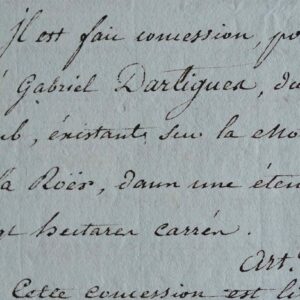 Il est fait concession, po
é Gabriel Dartigues, du
ub, éxistant sur la mo
la Roër, dans une éten
hectares carrés.
Art.
Cette concession est li